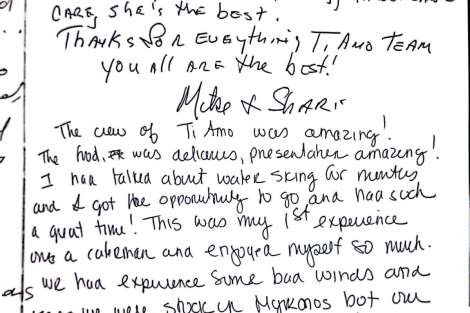 CARE, She's the best.
Thanks for everything, Ti Amo Team
you all are the best!
Mike & Shari
The crew of Ti Amo was amazing!
The food, was delicious, presentation amazing!
I had talked about water skiing for months
and I got the opportunity to go and had such
a great time! This was my 1st experience
on a catamaran and enjoyed myself so much.
we had experience some bad winds and
we were stuck in Mykonos but our